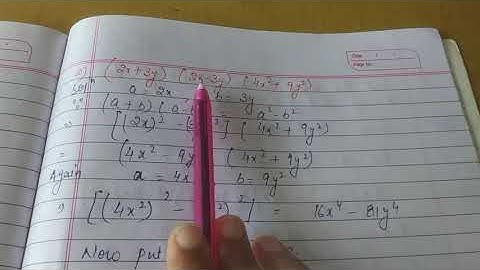 (2x+3y) (2x-3y) (4x²+9y²)
a = 2x b = 3y
(a+b) (a-b) a² - b²
⇒ [(2x)² - ²] (4x² + 9y²)
= (4x² - 9y (4x² + 9y²)
Again a = 4x b = 9y²
⇒ [(4x²)² - ²)²] = 16x⁴ - 81y⁴
Now put